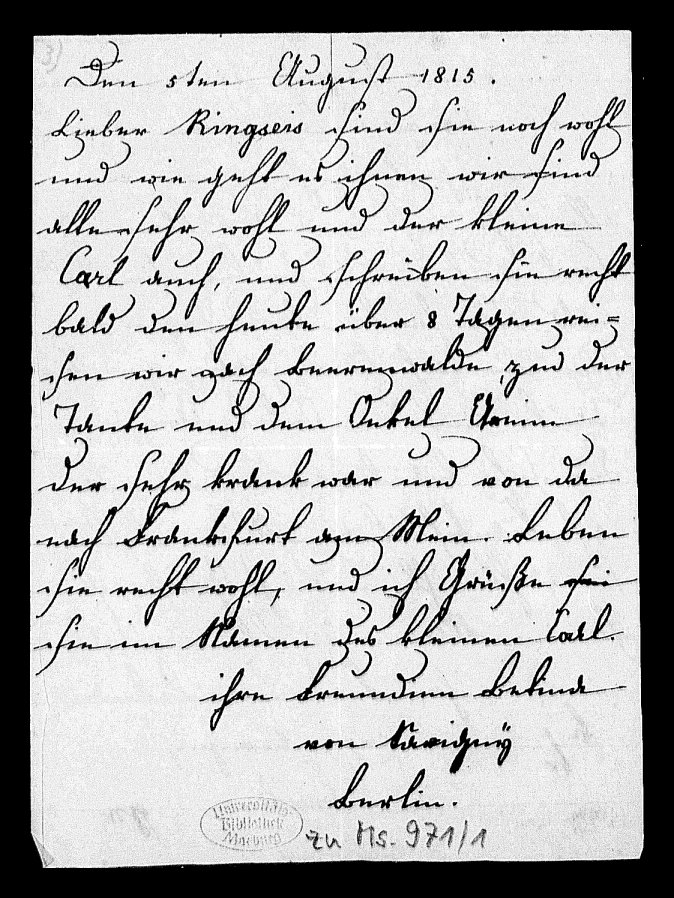 3)
Den 5ten August 1815.
Lieber Ringseis sind sie noch wohl
und wie geht es ihnen wir sind
alle sehr wohl und der kleine
Carl auch, und schreiben sie recht
bald den heute über 8 Tagen rei=
sen wir nach Beerenwalde, zu der
Tante und dem Onkel Arnim
der sehr krank war und von da
nach Frankfurt am Mein. Leben
sie recht wohl, und ich Grüße
sie im Namen des kleinen Carl.
ihre Freundinn Betina
von Savigny
Berlin.
Universitäts
Bibliothek
Marburg
zu Ms. 971/1